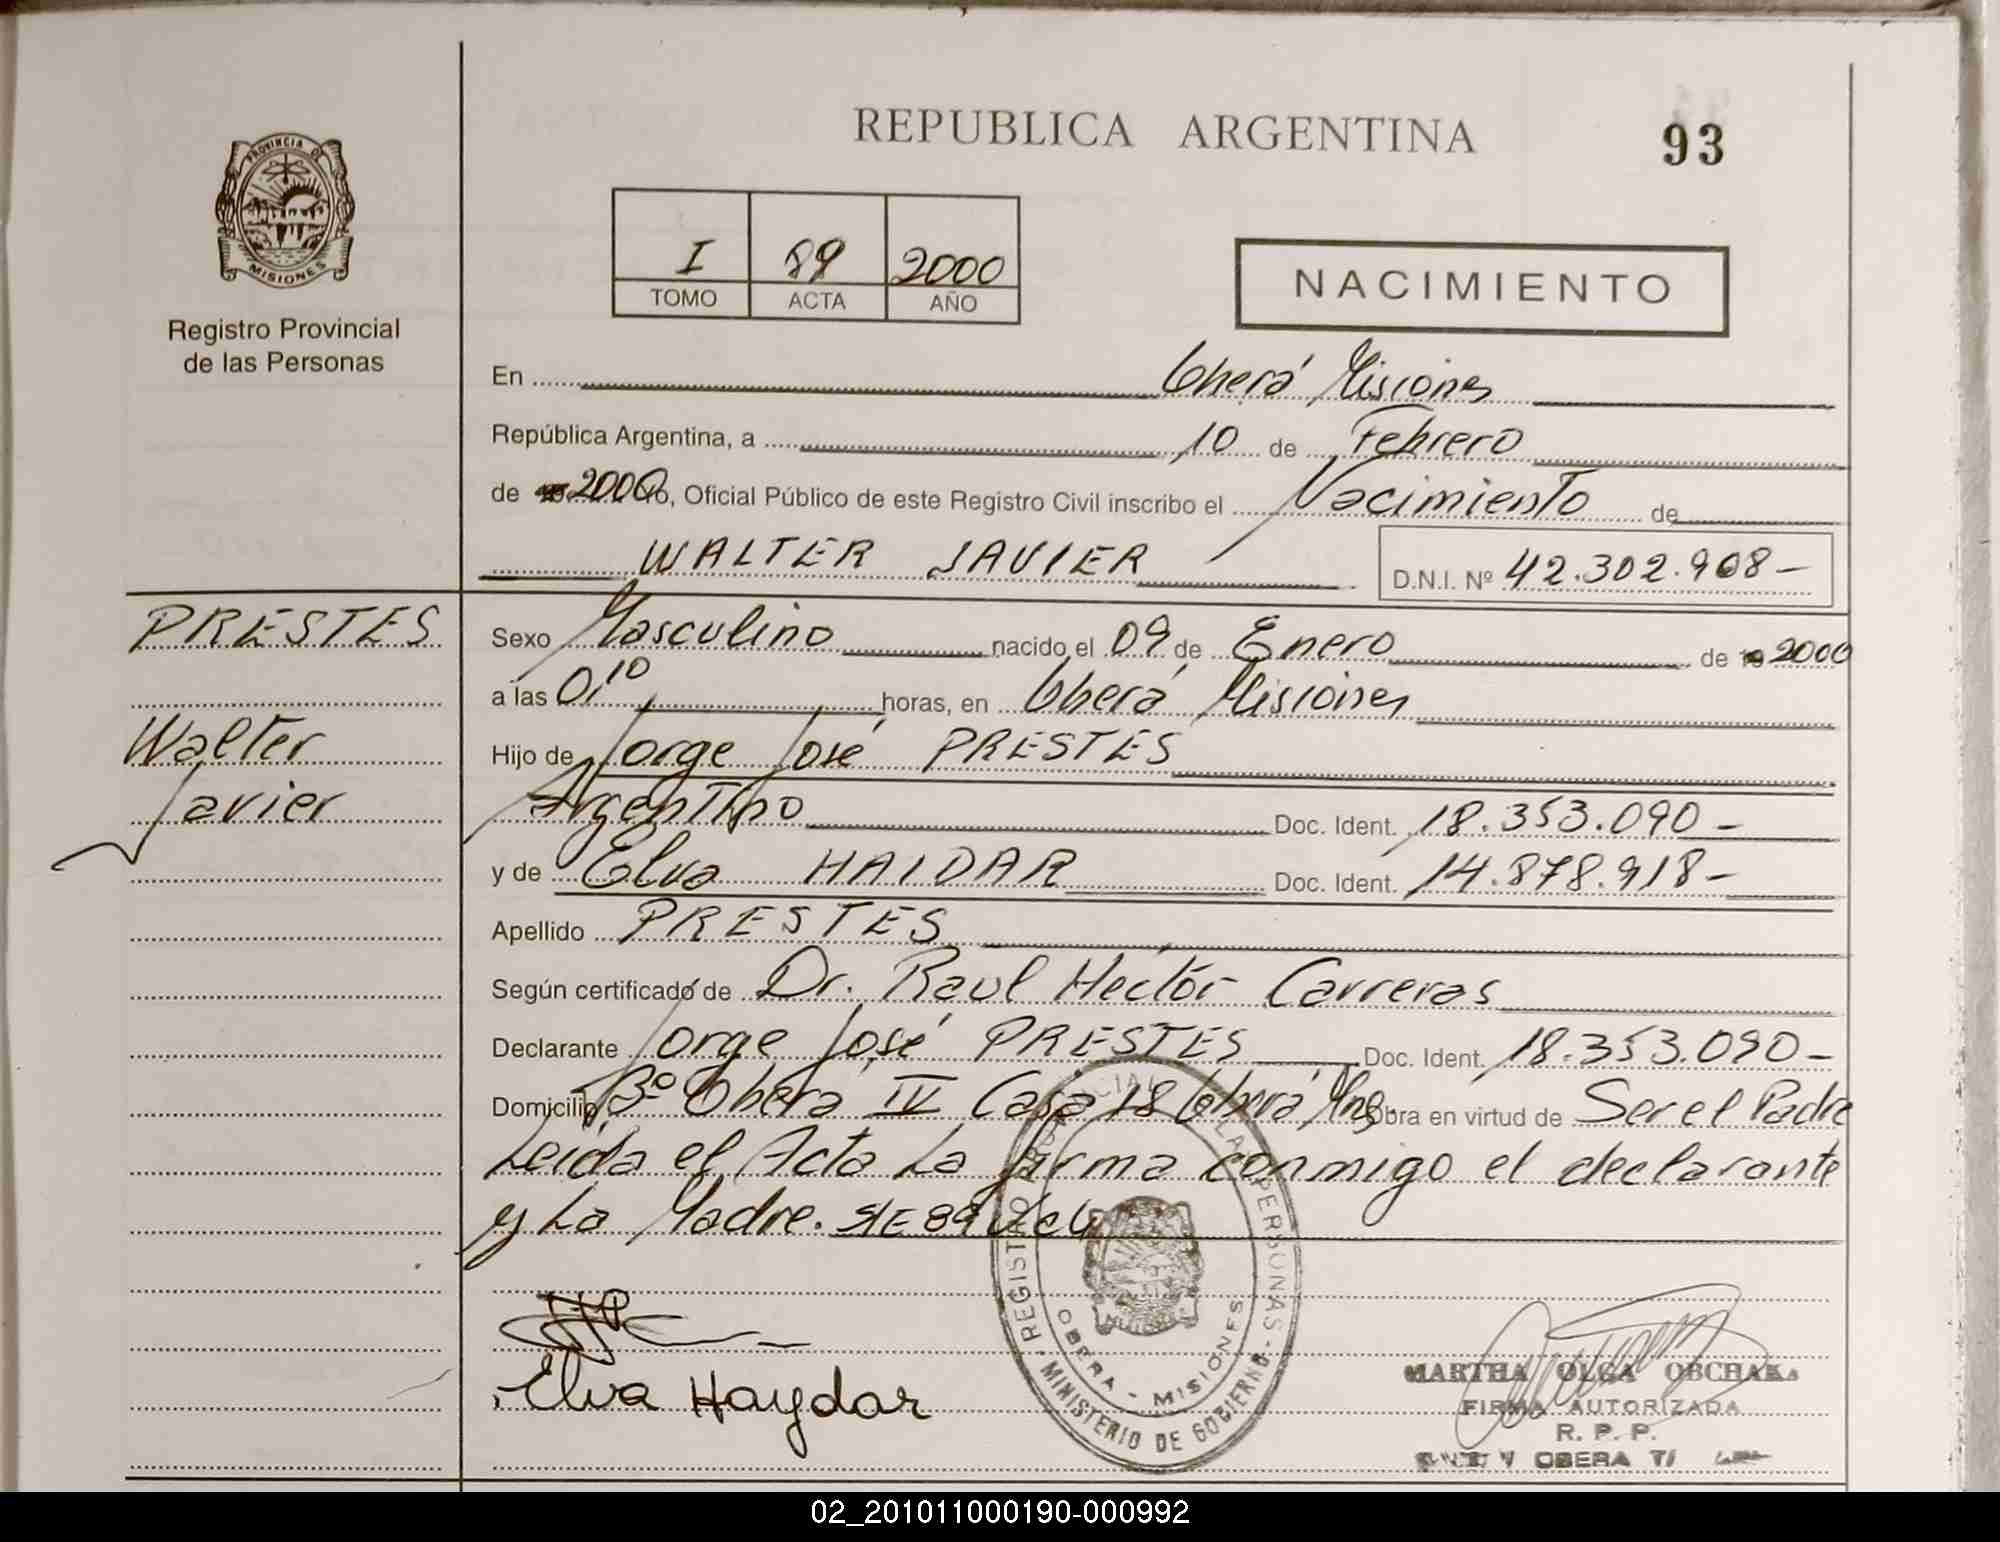 REPUBLICA ARGENTINA
93
PROVINCIA DE
MISIONES
Registro Provincial
de las Personas
I 89 2000
TOMO ACTA AÑO
NACIMIENTO
En Oberá Misiones
República Argentina, a 10 de Febrero
de 2000 Yo, Oficial Público de este Registro Civil inscribo el Nacimiento de
WALTER JAVIER D.N.I. Nº 42.302.908-
PRESTES
Walter
Javier
Sexo Masculino nacido el 09 de Enero de 2000
a las 0,10 horas, en Oberá Misiones
Hijo de Jorge José PRESTES
Argentino Doc. Ident. 18.353.090-
y de Elva HAIDAR Doc. Ident. 14.878.918-
Apellido PRESTES
Según certificado de Dr. Raul Hectór Carreras
Declarante Jorge José PRESTES Doc. Ident. 18.353.090-
Domicilio Bº Oberá IV Casa 18 Oberá Mnes. Obra en virtud de Ser el Padre
Leída el Acta La firma conmigo el declarante
y La Madre.
Elva Haydar
REGISTRO PROVINCIAL DE LAS PERSONAS - MINISTERIO DE GOBIERNO -
OBERA - MISIONES
MARTHA OLGA OBCHAKA
FIRMA AUTORIZADA
R. P. P.
OBERA
02_201011000190-000992